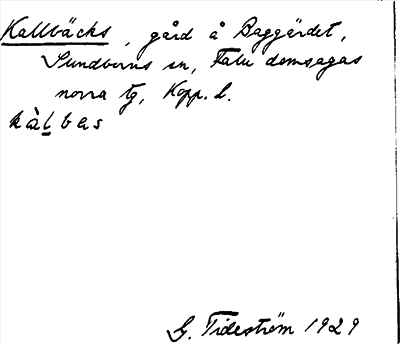 Kallbäcks, gård å Baggärdet,
Sundborns sn, Falu domsagas
norra tg, Kopp. l.
kàlbas
G. Tideström 1929